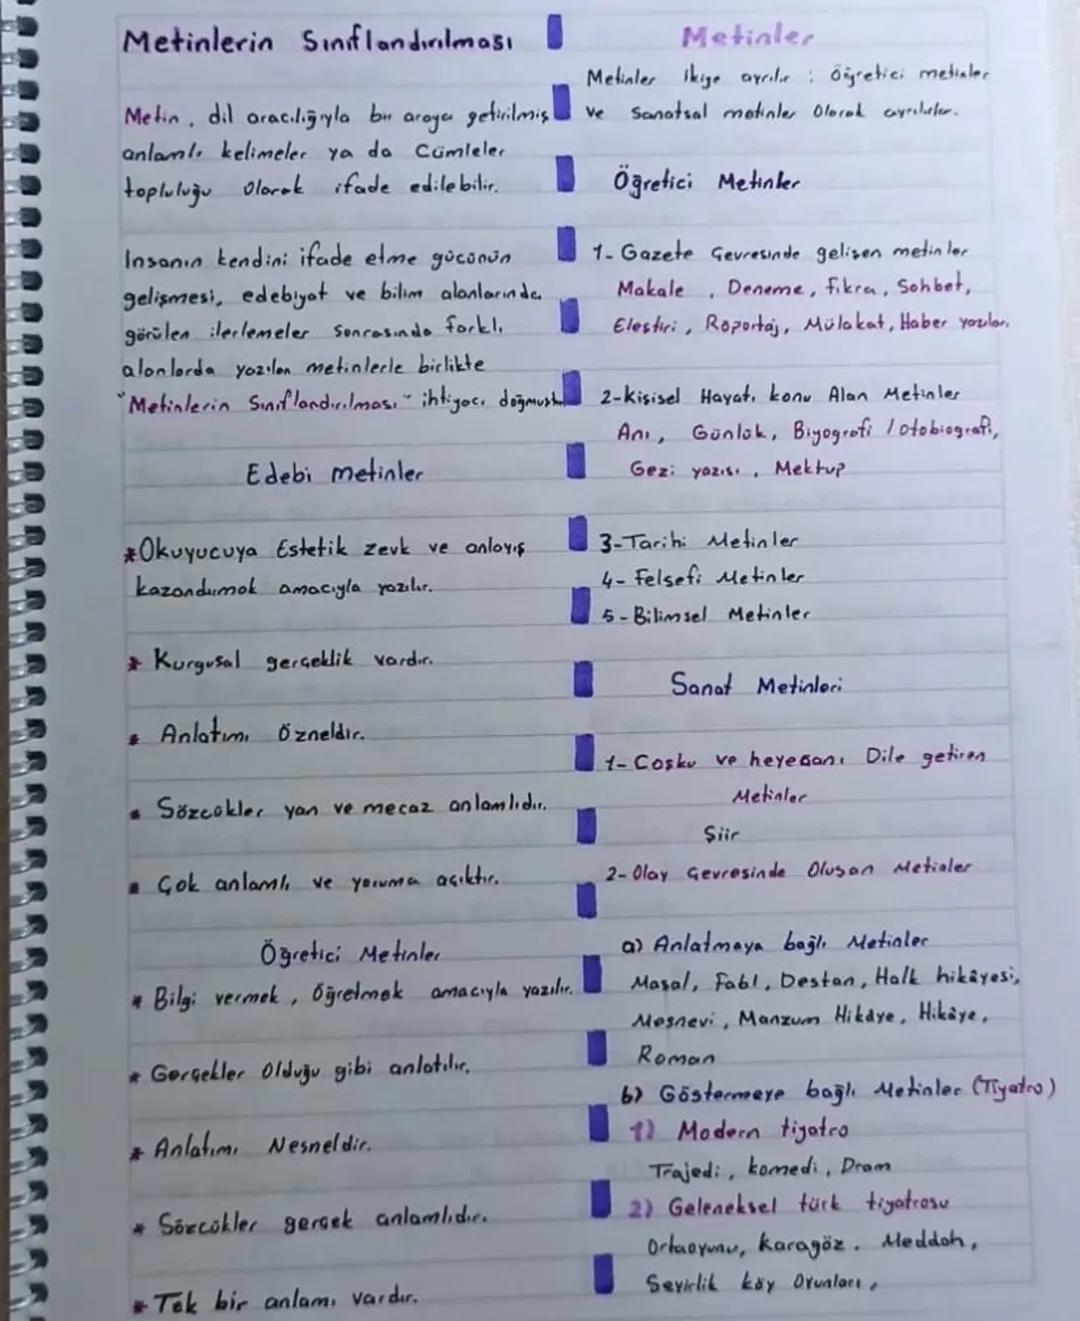 Metinlerin Sınıflandırılması
Metin, dil aracılığıyla bir araya getirilmiş
anlamlı kelimeler ya da Cümleler
topluluğu Olarak ifade edilebilir.
İnsanın kendini ifade etme gücünün
gelişmesi, edebiyat ve bilim alanlarında
görülen ilerlemeler Sonrasında farklı
alanlarda yazılan metinlerle birlikte
"Metinlerin Sınıflandırılması" ihtiyacı doğmuştu
Edebi metinler
* Okuyucuya Estetik zevk ve anlayış
kazandırmak amacıyla yazılır.
* Kurgusal gerçeklik vardır.
* Anlatımı Özneldir.
* Sözcükler yan ve mecaz anlamlıdır.
* Çok anlamlı ve yoruma açıktır.
Öğretici Metinler
* Bilgi vermek, Öğretmek amacıyla yazılır.
* Gerçekler Olduğu gibi anlatılır.
* Anlatımı Nesneldir.
* Sözcükler gerçek anlamlıdır.
* Tek bir anlamı vardır.
Metinler
Metinler İkiye ayrılır : Öğretici metinler
ve Sanatsal metinler Olarak ayrılırlar.
Öğretici Metinler
1- Gazete Çevresinde gelişen metinler
Makale, Deneme, fıkra, Sohbet,
Eleştiri, Röportaj, Mülakat, Haber yazıları
2-Kişisel Hayatı konu Alan Metinler
Anı, Günlük, Biyografi / otobiografi,
Gezi yazısı, Mektup
3-Tarihi Metinler
4- Felsefi Metinler
5-Bilimsel Metinler
Sanat Metinleri
1-Coşku ve heyecanı Dile getiren
Metinler
Şiir
2-Olay Çevresinde Oluşan Metinler
a) Anlatmaya bağlı Metinler
Masal, Fabl, Destan, Halk hikâyesi,
Mesnevi, Manzum Hikâye, Hikâye,
Roman
b) Göstermeye bağlı Metinler (Tiyatro)
1) Modern tiyatro
Trajedi, komedi, Dram
2) Geleneksel türk tiyatrosu
Ortaoyunu, Karagöz. Meddah,
Seyirlik köy Oyunları,